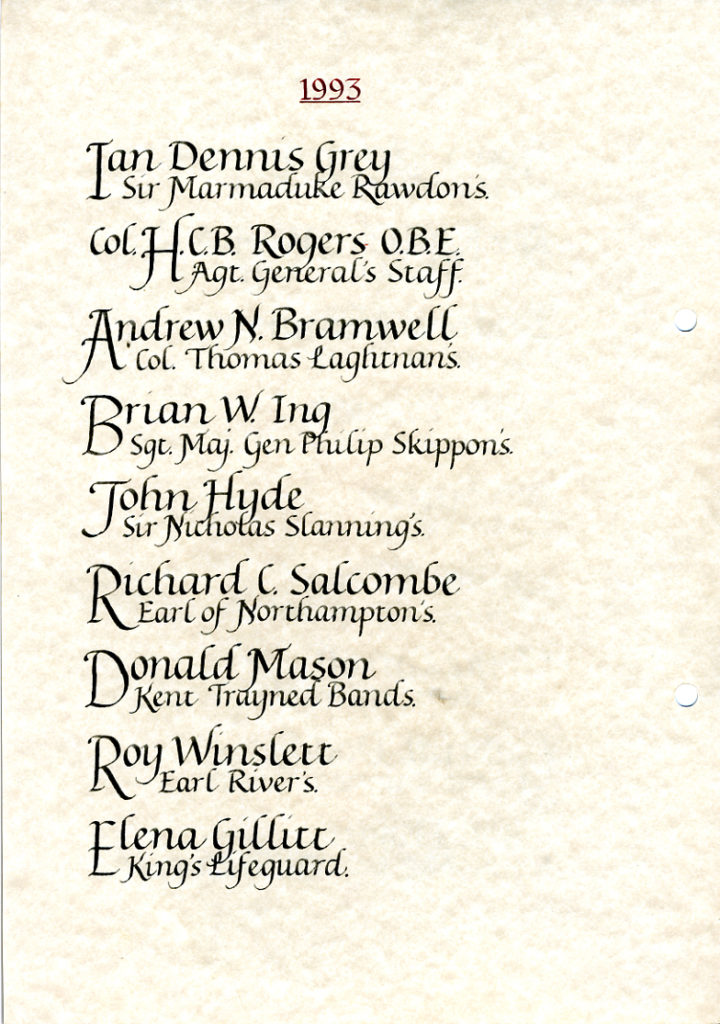 1993
Ian Dennis Grey
Sir Marmaduke Rawdon's.
Col. H.C.B. Rogers O.B.E.
Agt. General's Staff.
Andrew N. Bramwell
Col. Thomas Laghtnan's.
Brian W. Ing
Sgt. Maj. Gen Philip Skippon's.
John Hyde
Sir Nicholas Slanning's.
Richard C. Salcombe
Earl of Northampton's.
Donald Mason
Kent Trayned Bands.
Roy Winslett
Earl River's.
Elena Gillitt
King's Lifeguard.